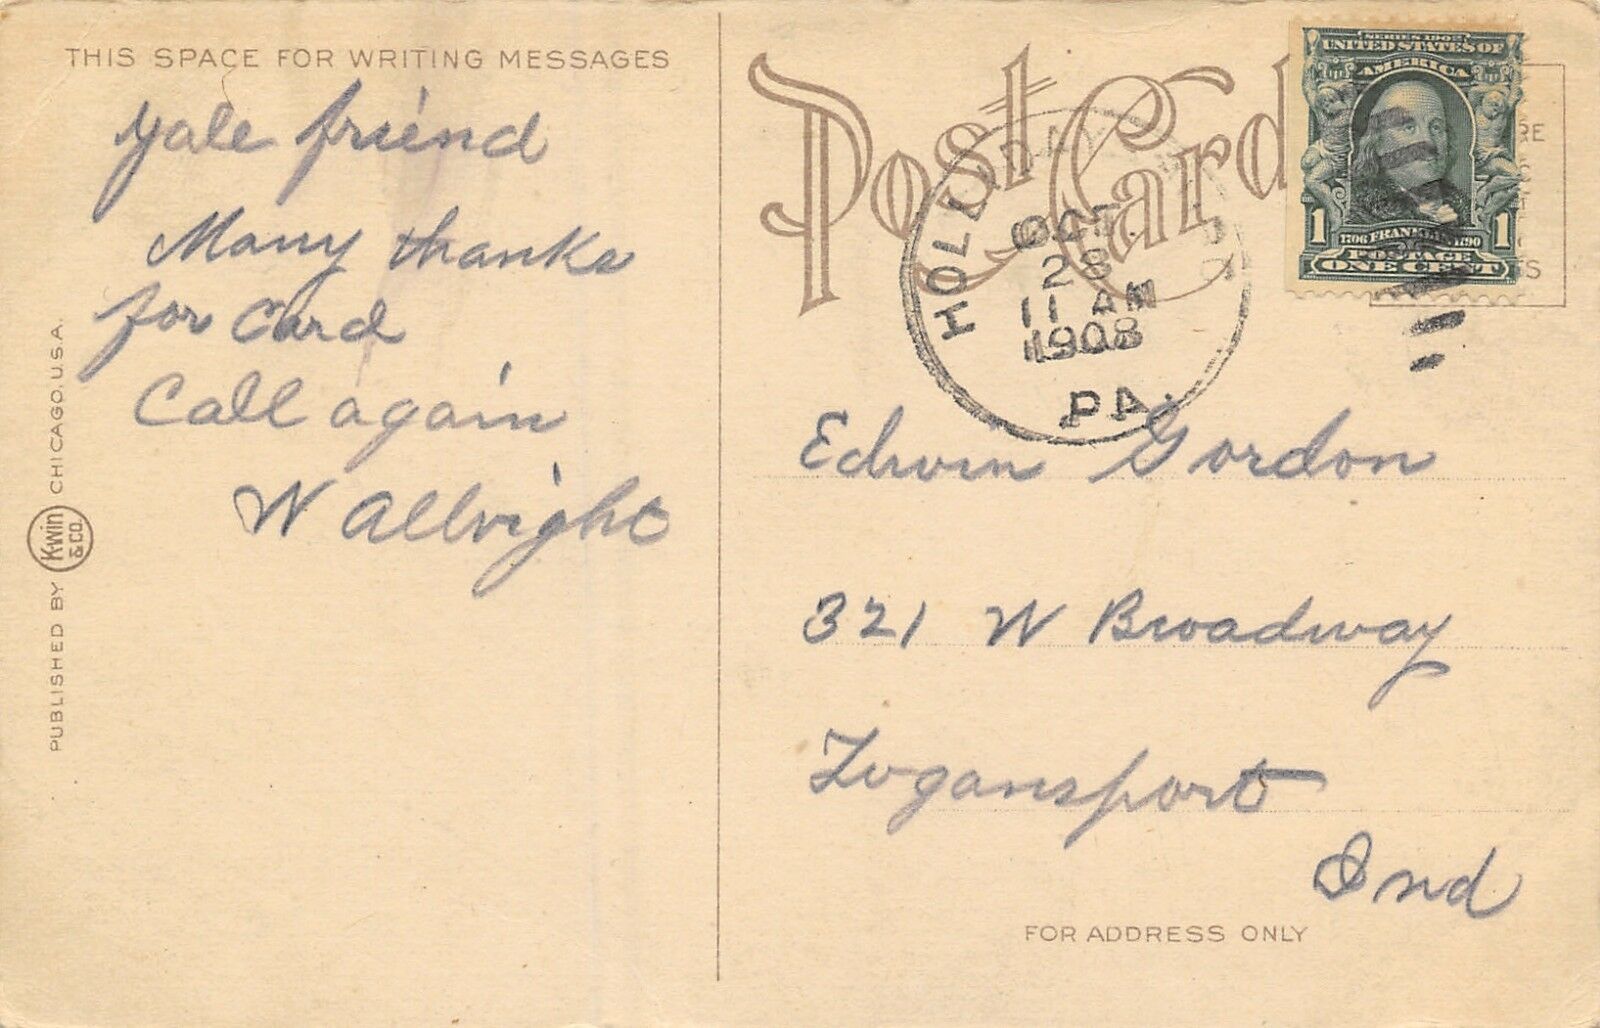 THIS SPACE FOR WRITING MESSAGES
yale friend
Many thanks
for card
Call again
W Allright
PUBLISHED BY Kwin & Co. CHICAGO, U.S.A.
Post Card
SERIES 1902
UNITED STATES OF
AMERICA
1 1
1706 FRANKLIN 1790
POSTAGE
ONE CENT
OCT
28
11 AM
1908
PA.
Edwin Gordon
321 W Broadway
Logansport
Ind
FOR ADDRESS ONLY